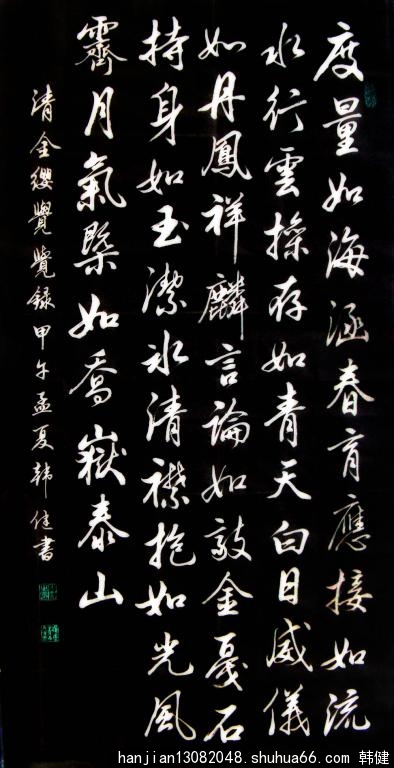 度量如海涵春育應接如流
水行雲操存如青天白日威儀
如丹鳳祥麟言論如敲金戛石
持身如玉潔冰清襟抱如光風
霽月氣槩如喬嶽泰山
清金纓覺覺錄甲午孟夏韓健書
hanjian13082048.shuhua66.com 韩健